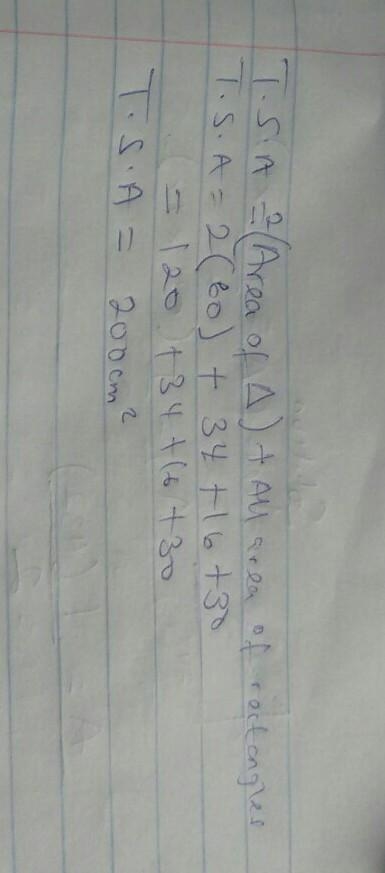 T.S.A = 2(Area of Δ) + All area of rectangles
T.S.A = 2(60) + 34 + 16 + 30
= 120 + 34 + 16 + 30
T.S.A = 200cm²